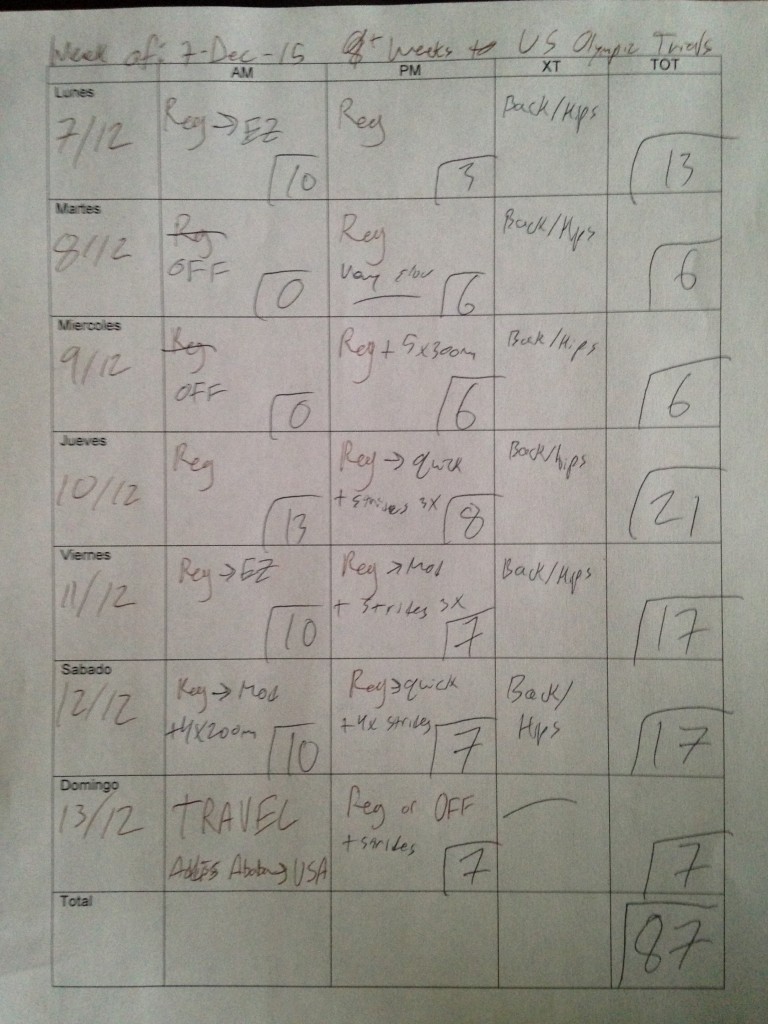 Week of: 7-Dec-15 8+ Weeks to US Olympic Trials
AM PM XT TOT
Lunes
7/12 Reg → EZ Reg Back/Hips
10 3 13
Martes
8/12 Reg Reg Back/Hips
OFF Very slow
0 6 6
Miercoles
9/12 Reg Reg + 5x300m Back/Hips
OFF
0 6 6
Jueves
10/12 Reg Reg → quick Back/hips
+ strides 3X
13 8 21
Viernes
11/12 Reg → EZ Reg → Mod Back/Hips
+ strides 3X
10 7 17
Sabado
12/12 Reg → Mod Reg → quick Back/
+4x200m +4x strides Hips
10 7 17
Domingo
13/12 TRAVEL Reg or OFF
+ strides
Addis Ababa → USA
7 7
Total
87